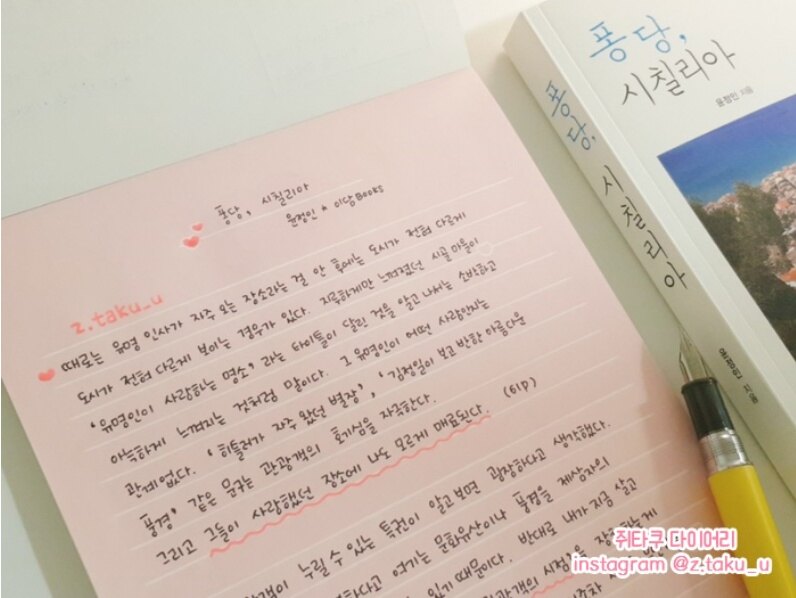 퐁당, 시칠리아
윤정인 * 이담 BOOKS
z.taku_u
때로는 유명 인사가 자주 오는 장소라는 걸 안 후에는 도시가 전혀 다르게
도시가 전혀 다르게 보이는 경우가 있다. 지루하게만 느껴졌던 시골 마을이
'유명인이 사랑하는 명소' 라는 타이틀이 달린 것을 알고 나서는 소박하고
아늑하게 느껴지는 것처럼 말이다. 그 유명인이 어떤 사람인지는
관계없다. '히틀러가 자주 왔던 별장', '김정일이 보고 반한 아름다운
풍경' 같은 문구는 관광객의 호기심을 자극한다.
그리고 그들이 사랑했던 장소에 나도 모르게 매료된다. (61p)
누릴 수 있는 특권이 알고보면 굉장하다고 생각했다.
여기는 문화유산이나 풍경을 제삼자의
있기 때문이다. 반대로 내가 지금 살고
관광객의 시점을
퐁당,
시칠리아
윤정인 지음
퐁당, 시칠리아
윤정인 지음
쥐타쿠 다이어리
instagram @z.taku_u